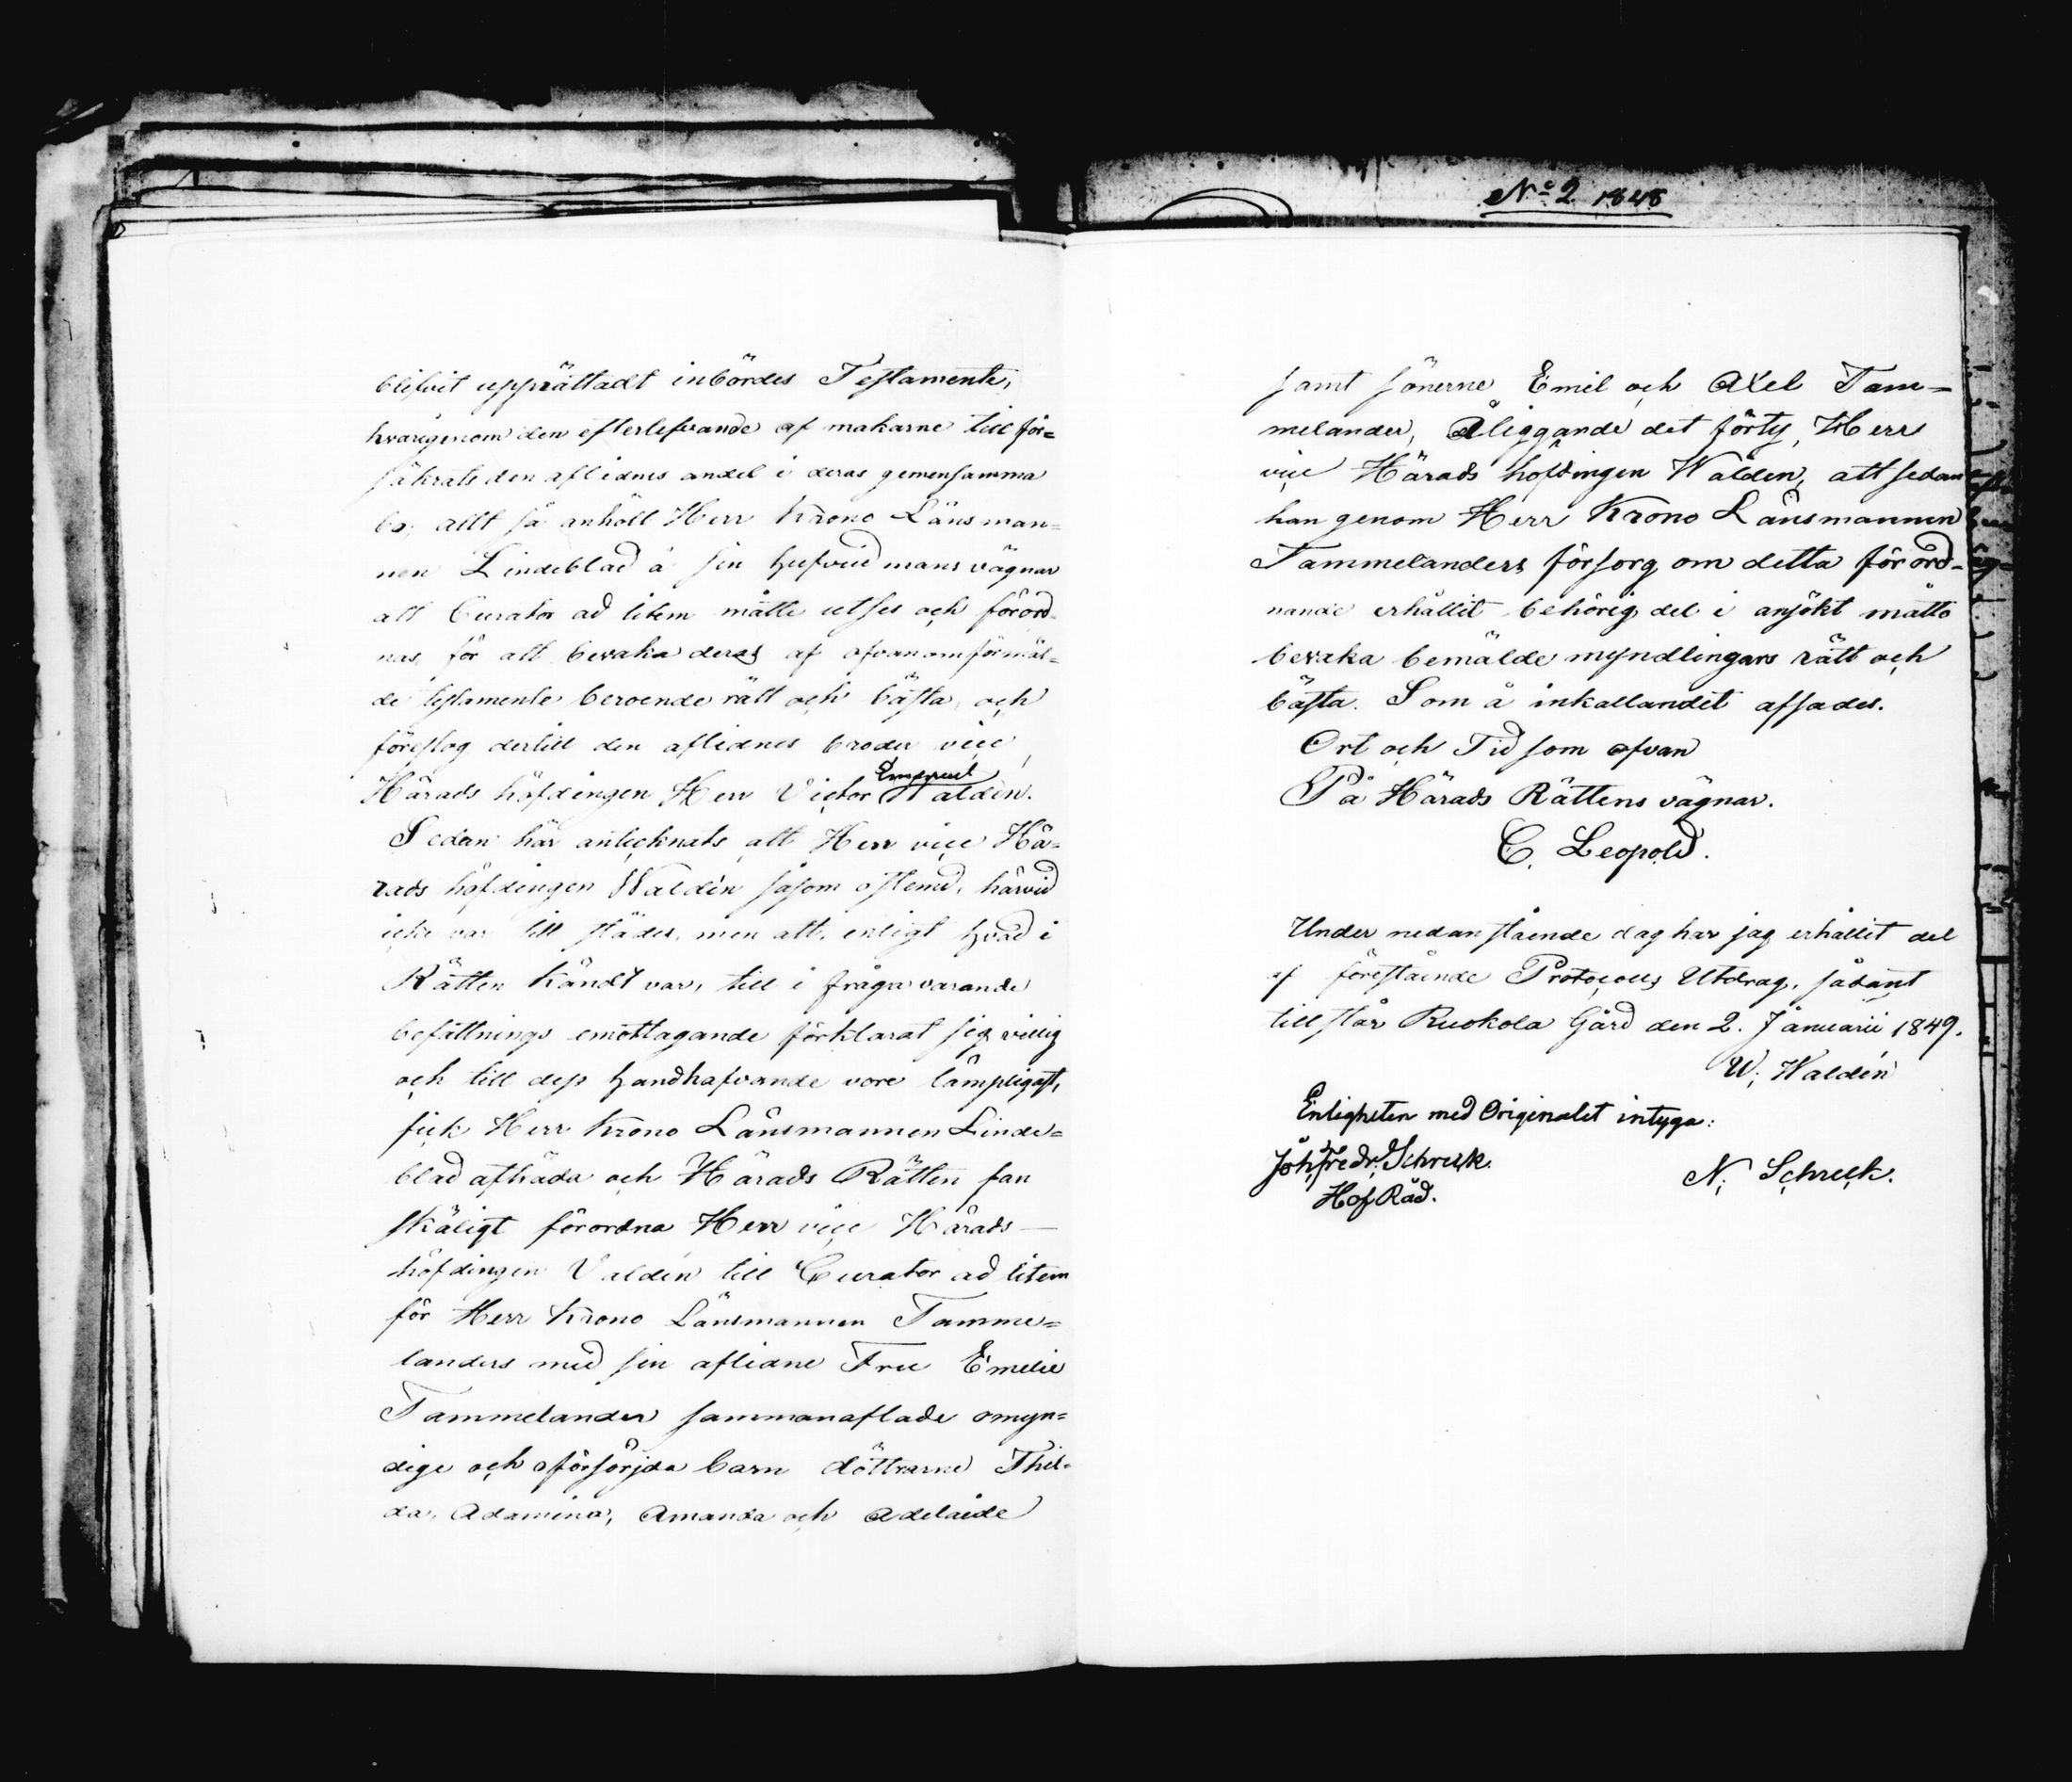 blifvit upprättadt inbördes Testamente,
hvarigenom den efterlefvande af makarne till för=
säkrats den aflidnes andel i deras gemensamma
bo; allt så anhöll Herr Krono Länsman=
nen Lindeblad å sin hufvudmans vägnar
att Curator ad litem måtte utses och förord=
nas, för att bevaka deras af ofvanomförmäl=
de testamente beroende rätt och bästa, och
föreslog dertill den aflidnes broder vice
Emanuel
Härads höfdingen Herr Victor Waldén.
Sedan här antecknats att Herr vice Hä=
rads höfdingen Waldén såsom ostemd, härvid
icke var till städes, men att, enligt hvad i
Rätten kändt var, till i fråga varande
befattnings emottagande förklarat sig villig
och till dess handhafvande vore lämpligast,
fick Herr Krono Länsmannen Linde=
blad afträda och Härads Rätten fan
skäligt förordna Herr vice Härads
höfdingen Valdén till Curator ad litem
för Herr Krono Länsmannen Tamme=
landers med sin aflidne Fru Emelie
Tammelander sammanaflade omyn=
dige och oförsörjda barn döttrarne Thil=
da, Adamina, Amanda och Adelaide
No 2 1848
samt sönerne Emil och Axel Tam=
melander, Åliggande det förty, Herr
vice Härads höfdingen Waldén, att sedan
han genom Herr Krono Länsmannen
Tammelanders försorg om detta förord=
nande erhållit behörig del i ansökt måtto
bevaka bemälde myndlingars rätt och
bästa. Som å inkallandet afsades.
Ort och Tid som ofvan
På Härads Rättens vägnar.
C. Leopold.
Under nedanstående dag har jag erhållit del
af förestående Protocolls Utdrag, sådant
till står Ruokola Gård den 2. Januarii 1849.
W. Waldén
Enligheten med Originalet intyga:
Joh. Fredr. Schreck.
N. Schreck.
Hof Råd.